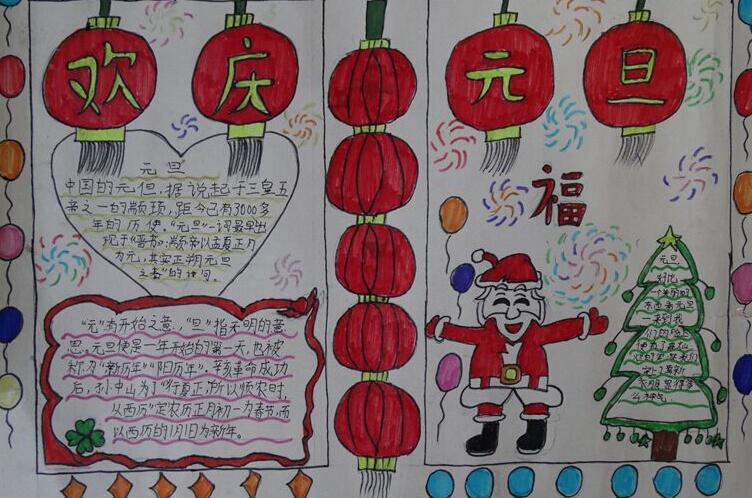 欢庆元旦
元旦
中国的元但,据说起于三皇五
帝之一的颛顼,距今已有3000多
年的历使。“元旦”一词最早出
现于《晋书》:“颛帝以孟夏正月
为元,其实正朔元旦
之春”的诗句。
“元”有开始之意,“旦”指天明的意
思。元旦便是一年开始的第一天,也被
称为“新历年”“阳历年”。辛亥革命成功
后,孙中山为了“行夏正,所以顺农时,
从西历”定农历正月初一为春节,而
以西历的1月1日为新年。
福
元旦
一个美丽的
一来到我
们的